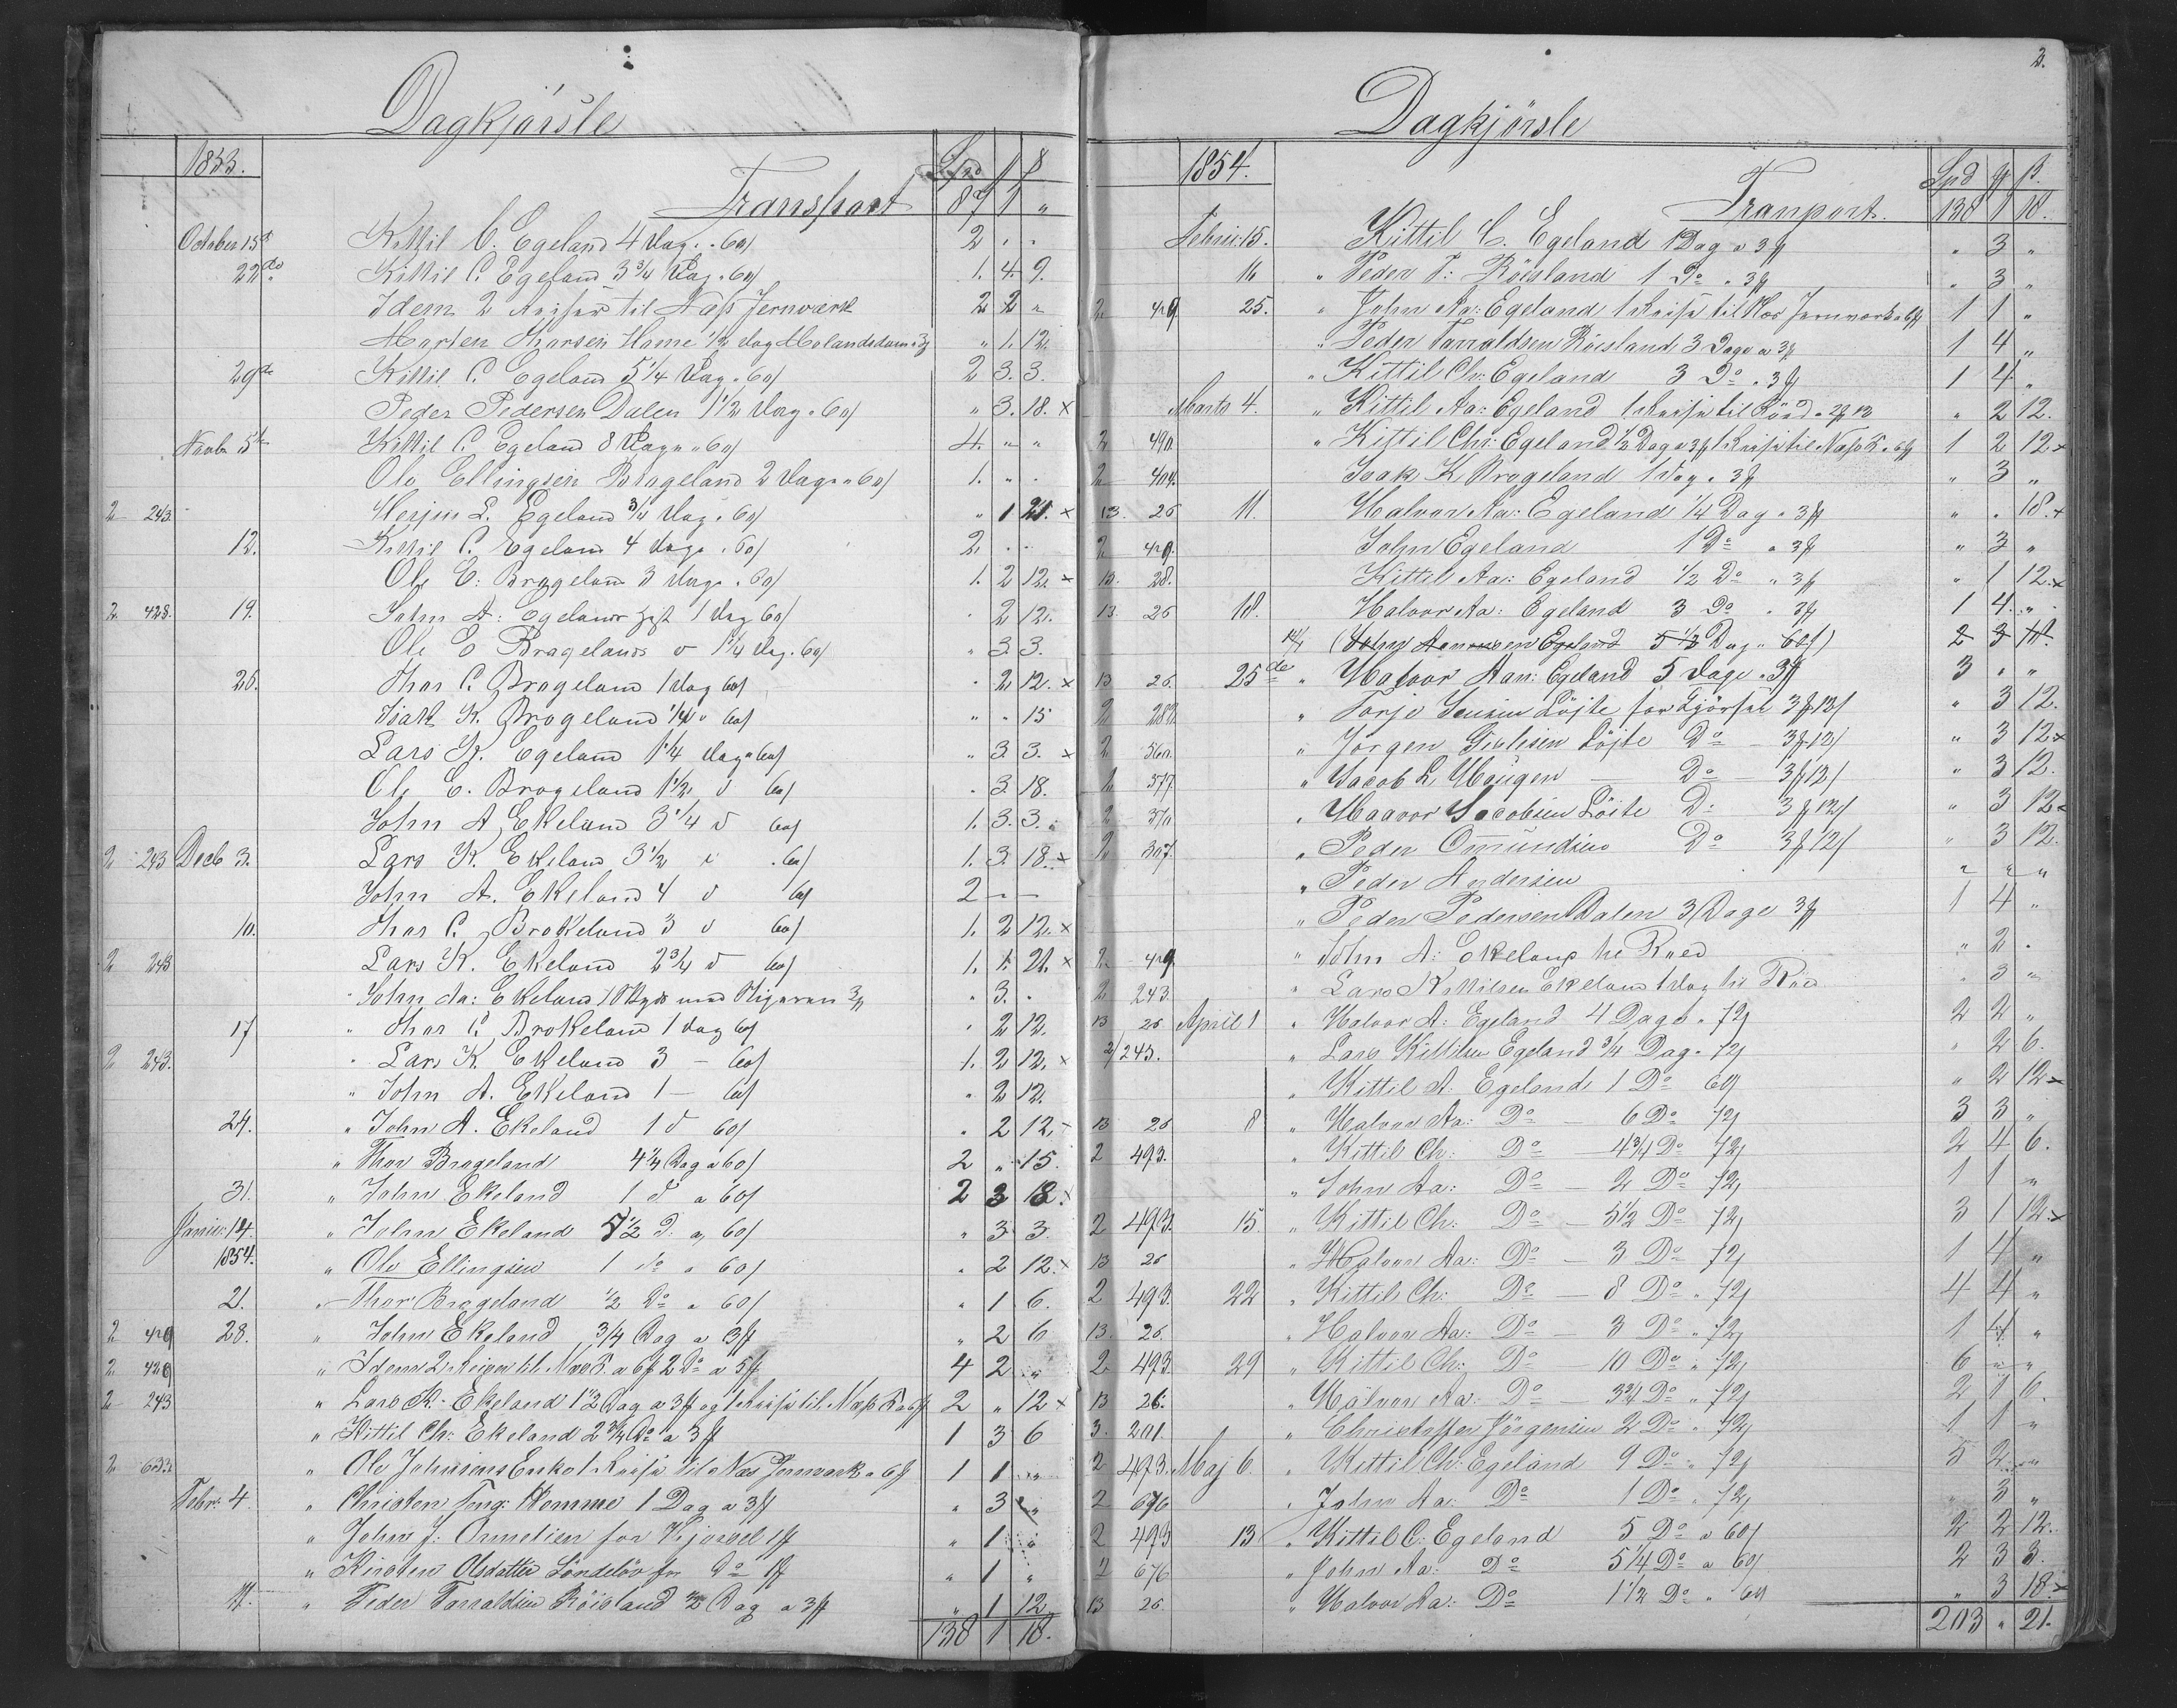 Dagkjörsle
1853. Spd
Transport 87 1 "
October 15de Kittil C. Egeland 4 Dag " 60/ 2 " "
22do Kittil C. Egeland 3 3/4 Dag " 60/ 1. 4 9.
Idem 2 Reiser til Næs Jernværk 2 2 "
Homme 1/2 Dag " 1. 12.
29de Kittil C. Egeland 5 1/4 Dag " 60/ 2 3. 3.
Peder Pedersen Dalen 1 1/2 Dag " 60/ " 3. 18. x
Novbr 5te Kittil C. Egeland 8 Dage " 60/ 4. " "
Ole Ellingsen Brageland 2 Dage " 60/ 1. " "
2 243. L. Egeland 3/4 Dag " 60/ " 1 21. x
12. Kittil C. Egeland 4 Dage " 60/ 2. " "
Ole E. Brageland 3 Dage " 60/ 1. 2 12. x
2 428. 19. John A: Egeland 1 Dag 60/ " 2 12.
Ole E Brageland 1 1/4 Dag " 60/ " 3 3.
26. Thor C. Brageland 1 Dag 60/ " 2 12. x
Isak K. Brageland 1/4 " 60/ " " 15
Lars K. Egeland 1 1/4 Dag " 60/ " 3 3. x
Ole E. Brageland 1 1/2 d 60/ " 3 18.
John A. Ekeland 3 1/4 d 60/ 1. 3. 3.
2 243 Decb 3. Lars K. Ekeland 3 1/2 d " 60/ 1. 3 18. x
John A. Ekeland 4 d 60/ 2 - -
10. Thor C. Brokeland 3 d 60/ 1. 2 12. x
2 243 Lars K. Ekeland 2 3/4 d 60/ 1. 1. 21. x
John Aa: Ekeland 1 med " 3. "
17 " Thor C. Brokeland 1 Dag 60/ " 2 12.
2 243. " Lars K. Ekeland 3 - 60/ 1. 2 12. x
" John A. Ekeland 1 - 60/ " 2 12.
24. " John A. Ekeland 1 d 60/ " 2 12.
" Thor Brageland 4 1/4 Dag a 60/ 2 " 15.
31. " John Ekeland 1 d a 60/ 2 3 18. x
Januar: 14. " John Ekeland 5 1/2 D. a 60/ " 3 3.
1854. " Ole Ellingsen 1 do a 60/ " 2 12. x
21. " Thor Brageland 1/2 Do a 60/ " 1 6.
2 429 28. " John Ekeland 3/4 Dag a 3 " 2 6
2 429 " Idem 2 Reiser til Næs 4 2 "
2 243 " Lars K. Ekeland 1 1/2 Dag a 3 og 1 Reise til Næss 2 " 12 x
" Kittil Ch: Ekeland 2 3/4 Do a 3 1 3 6
2 " Ole Johnsens Enke 1 Reise til Næs Jernværk 1 1 "
Febr: 4. " Christen Homme 1 Dag a 3 " 3 "
" John J. for " 1 "
" Kirsten Olsdatter for Do " 1 "
11. " Peder Tarraldsen Röisland 1/2 Dag a 3 " 1 12.
138 1 18.
2.
Dagkjörsle
1854. Spd
Tranport. 138 1 18.
Febru: 15. Kittil C. Egeland 1 Dag a 3 " 3 "
16 " Peder T: Röisland 1 Do " 3 " 3 "
2 429 25. " John Aa: Egeland 1 Reise til Næs Jernværk 1 1 "
" Peder Tarraldsen Röisland 3 Dage a 3 1 4 "
" Kittil Ch: Egeland 3 Do " 3 1 4 "
Marts 4. " Kittil Aa: Egeland 1 Reise til " 2 12.
2 " Kittil Chr: Egeland 1/2 Dag a 3 1 Reise til Næss 1 2 12 x
2 404. Isak K. Brageland 1 Dag " 3 " 3 "
13. 26 11. Halvor Aa: Egeland 1/4 Dag " 3 " " 18. x
2 429. John Egeland 1 Do " 3 " 3 "
13. 28. Kittil Aa: Egeland 1/2 Do " 3 " 1 12. x
13. 26 18. Halvor Aa: Egeland 3 Do " 3 1 4. "
(John Aanensen Egeland 5 1/2 Dag " 60/) 2 3
13 26. 25de " Halvor Aan: Egeland 5 Dage " 3 3 " "
2 " Torje Löite for 3 12/ " 3 12.
2 " Jörgen Löite Do - 3 12/ " 3 12 x
2 377 " Jacob L. Haugen Do 3 12/ " 3 12.
2 " Haavor Jacobsen Löite Do 3 12/ " 3 12 x
2 307 " Peder Omundsen Do 3 12/ " 3 12.
" Peder Andersen " " "
" Peder Pedersen Dalen 3 Dage 3 1 4 "
2 429 " John A: Ekeland " 2 "
2 243. " Lars Kittilsen Ekeland 1 Dag " 3 "
13 26 April 1 " Halvor A: Egeland 4 Dage " 72/ 2 2 "
2/243. " Lars Kittilsen Egeland 3/4 Dag " 72/ " 2 6.
" Kittil A. Egeland 1 Do 60/ " 2 12 x
13 26 8 " Halvor Aa: Do - 6 Do 72/ 3 3 "
2 493. " Kittil Ch: Do - 4 3/4 Do 72/ 2 4 6.
" John Aa: Do - 2 Do 72/ 1 1 "
2 493 15. " Kittil Ch: Do - 5 1/2 Do 72/ 3 1 12. x
13 26 " Halvor Aa: Do - 3 Do 72/ 1 4 "
2 493. 22 " Kittil Ch: Do - 8 Do " 72/ 4 4 "
13. 26. " Halvor Aa: Do - 3 Do " 72/ 1 4 "
2 493 29 " Kittil Ch: Do - 10 Do " 72/ 6 " "
13 26. " Halvor Aa: Do - 3 3/4 Do " 72/ 2 1 6.
3. 201. " Christoffer Jörgensen 2 Do " 72/ 1 1 "
2 493. Maj 6. " Kittil Ch: Egeland 9 Do " 72/ 5 2 "
2 676 " John Aa: Do 1 Do " 72/ " 3 "
2 493 13 " Kittil C. Egeland 5 Do a 60/ 2 2 12.
2 676 " John Aa: Do 5 1/4 Do a 60/ 2 3 3.
13 26. " Halvor Aa: Do 1 1/2 Do " 60/ " 3 18. x
203 " 21.